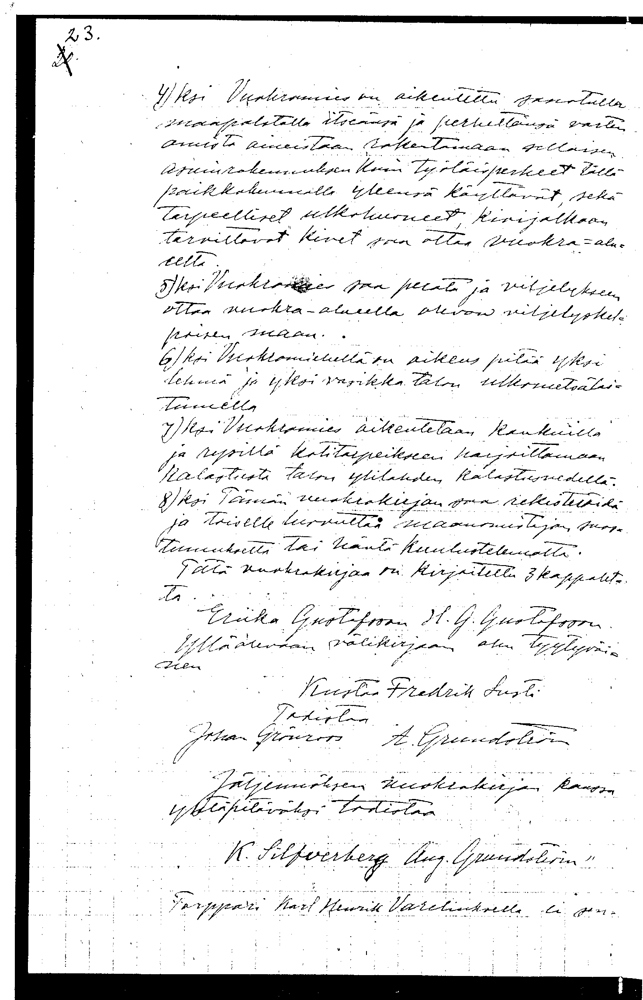 23.
4)ksi Vuokramies on oikeutettu sanotulla
maapalstalla itseänsä ja perhettänsä varten
omista aineistaan rakentamaan sellaisen
asuinrakennuksen kuin työläisperheet tällä
paikkakunnalla yleensä käyttävät, sekä
tarpeelliset ulkohuoneet, kivijalkaan
tarvittavat kivet saa ottaa vuokra=alu=
eelta.
5)ksi Vuokramies saa perata ja viljelykseen
ottaa vuokra-alueella olevan viljelyskel=
poisen maan.
6)ksi Vuokramiehellä on oikeus pitää yksi
lehmä ja yksi vasikka talon ulkometsälai=
tumella
7)ksi Vuokramies oikeutetaan koukuilla
ja rysillä kotitarpeikseen harjoittamaan
kalastusta talon ylilahden kalastusvedellä.
8)ksi Tämän vuokrakirjan saa rekisteröidä
ja toiselle luovuttaa maanomistajan suos=
tumuksetta tai häntä kuulustelematta.
Tätä vuokrakirjaa on kirjoitettu 3 kappalet=
ta.
Eriika Gustafsson H. G. Gustafsson.
Ylläolevaan välikirjaan olen tyytyväi=
nen
Kustaa Fredrik Susti
Todistaa
Johan Grönroos A. Grundström
Jäljennöksen vuokrakirjan kanssa
yhtäpitäväksi todistaa
K. Silfverberg Aug. Grundström"
Torppari Karl Henrik Vareliuksella ei